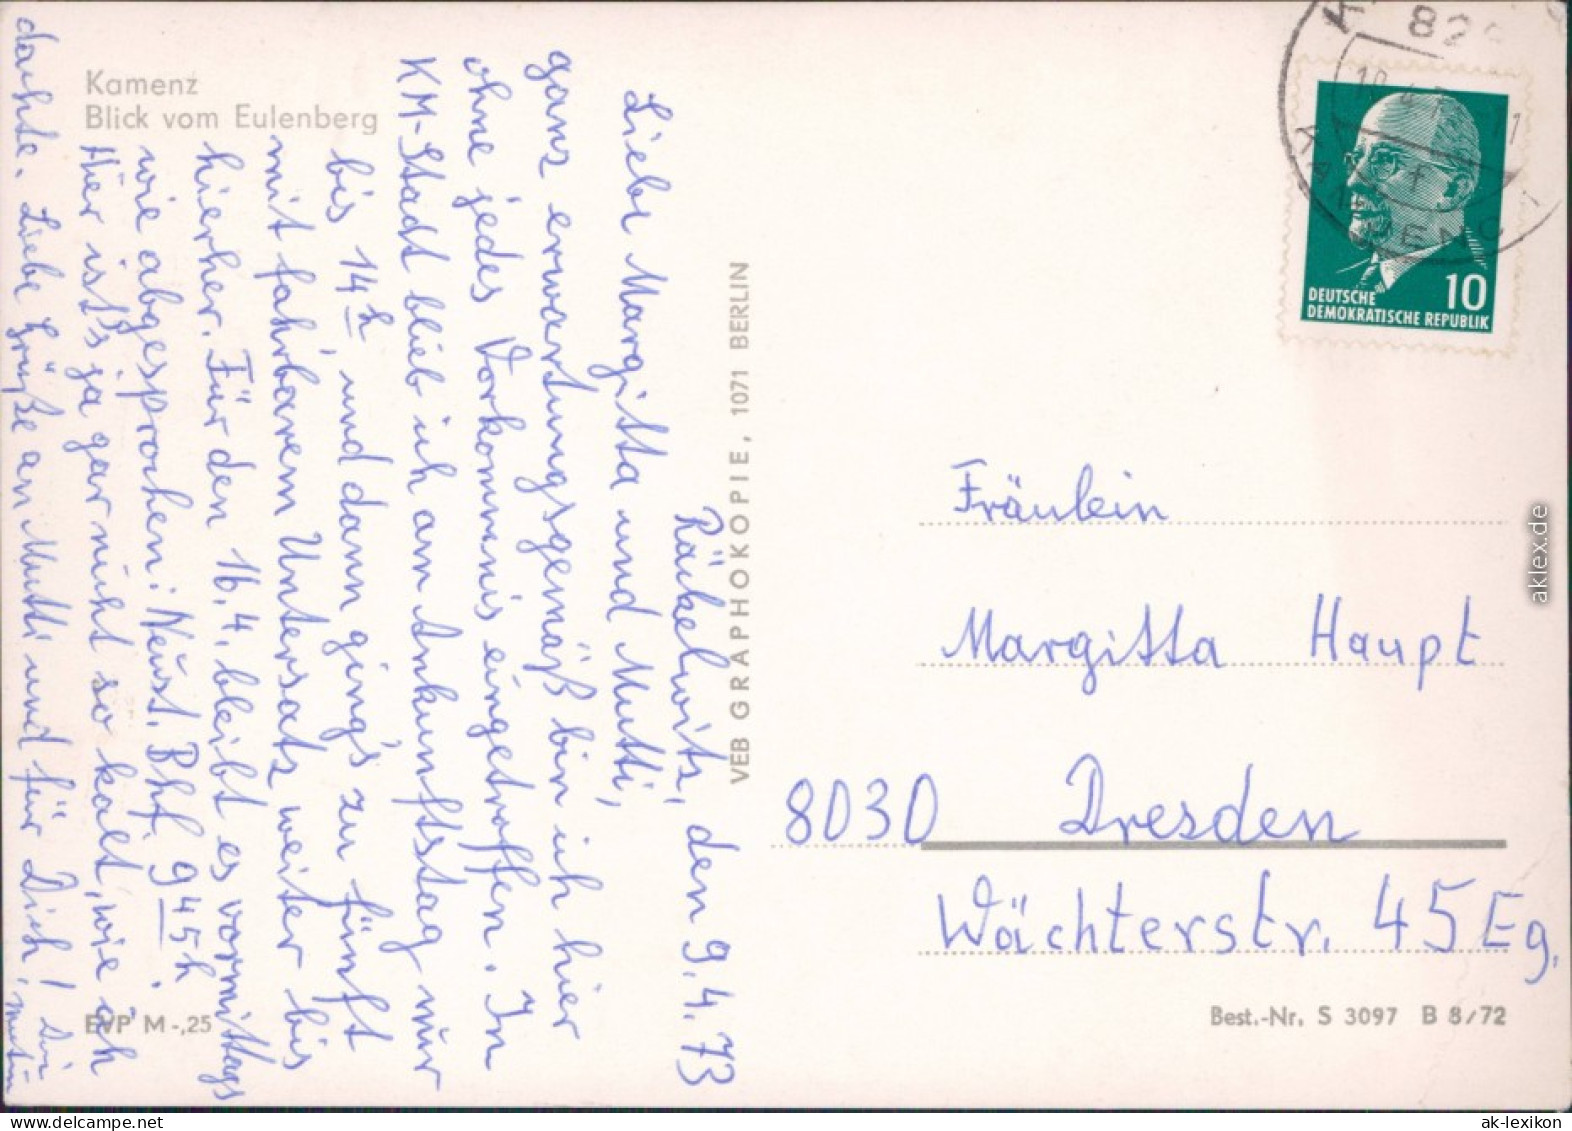 Kamenz
Blick vom Eulenberg
Räckelwitz, den 9.4.73
Liebe Margitta und Mutti,
ganz erwartungsgemäß bin ich hier
ohne jedes Vorkommnis eingetroffen. In
KM-Stadt blieb ich am Ankunftstag nur
bis 14h und dann ging's zu fünft
mit fahrbarem Untersatz weiter bis
hierher. Für den 16.4. bleibt es vormittags
wie abgesprochen: Neust. Bhf. 9 45 h.
Hier ist's ja gar nicht so kalt, wie ich
dachte. Liebe Grüße an Mutti und für Dich!
EVP M -,25
VEB GRAPHOKOPIE, 1071 BERLIN
829
KAMENZ 1
10
DEUTSCHE
DEMOKRATISCHE REPUBLIK
Fräulein
Margitta Haupt
8030 Dresden
Wächterstr. 45 Eg.
Best.-Nr. S 3097 B 8/72
aklex.de
www.delcampe.net
ak-lexikon